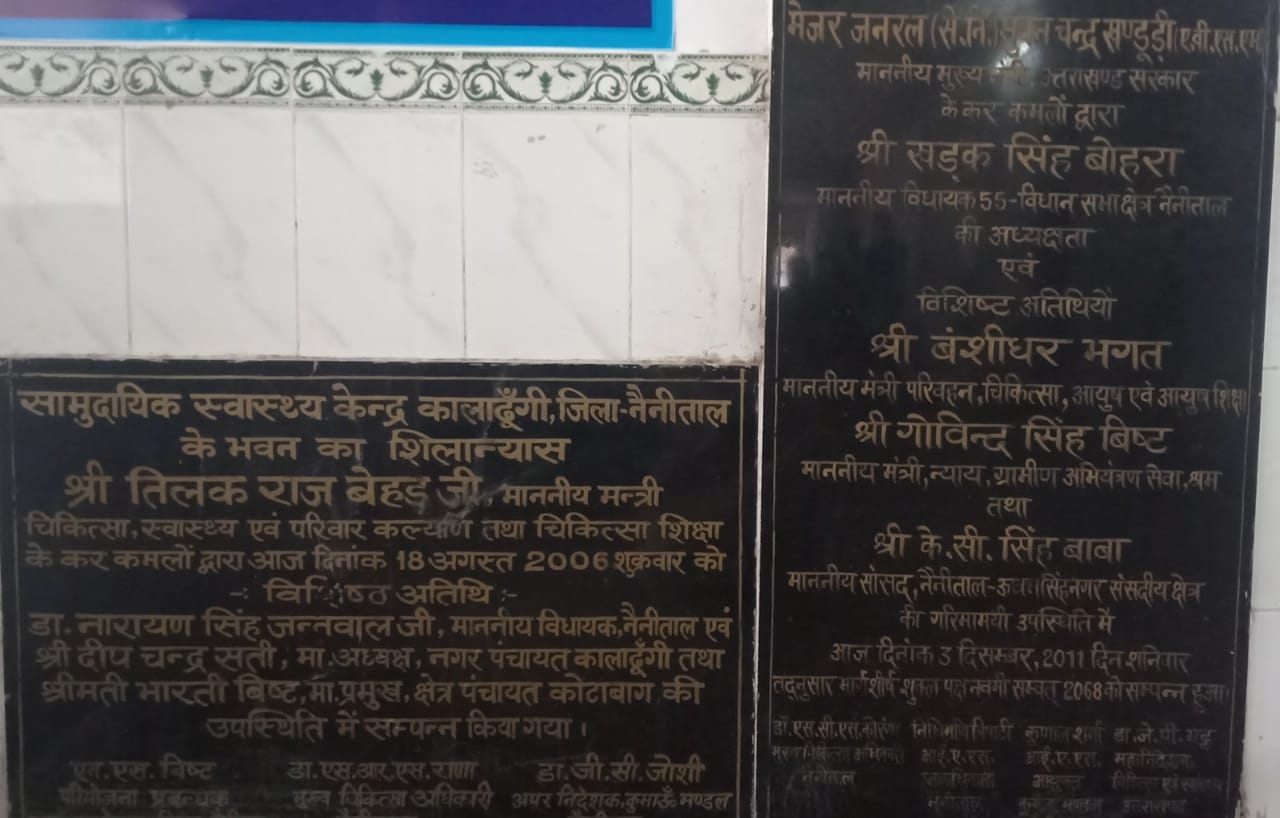 सामुदायिक स्वास्थ्य केन्द्र कालाढूँगी, जिला-नैनीताल
के भवन का शिलान्यास
श्री तिलक राज बेहड़ जी, माननीय मन्त्री
चिकित्सा, स्वास्थ्य एवं परिवार कल्याण तथा चिकित्सा शिक्षा
के कर कमलों द्वारा आज दिनांक 18 अगस्त 2006 शुक्रवार को
-: अतिथि :-
डा. नारायण सिंह जन्तवाल जी, माननीय विधायक, नैनीताल एवं
श्री दीप चन्द्र सती, मा. अध्यक्ष, नगर पंचायत कालाढूँगी तथा
श्रीमती भारती बिष्ट, मा. प्रमुख, क्षेत्र पंचायत कोटाबाग की
उपस्थिति में सम्पन्न किया गया।
एन. एस. बिष्ट डा. एस. आर. एस. राणा डा. जी. सी. जोशी
परियोजना प्रबन्धक मुख्य चिकित्सा अधिकारी अपर निदेशक, कुमाऊँ मण्डल
मेजर जनरल (से.नि.) चन्द्र खण्डूड़ी (ए.वी.एस.एम)
माननीय मुख्य उत्तराखण्ड सरकार
के कर कमलों द्वारा
श्री खड़क सिंह बोहरा
माननीय विधायक 55-विधान सभा क्षेत्र नैनीताल
की अध्यक्षता
एवं
विशिष्ट अतिथियों
श्री बंशीधर भगत
माननीय मंत्री परिवहन, चिकित्सा, आयुष एवं आयुष शिक्षा
श्री गोविन्द सिंह बिष्ट
माननीय मंत्री, न्याय, ग्रामीण अभियंत्रण सेवा, श्रम
तथा
श्री के.सी. सिंह बाबा
माननीय सांसद, नैनीताल-ऊधमसिंहनगर संसदीय क्षेत्र
की गरिमामयी उपस्थिति में
आज दिनांक 3 दिसम्बर, 2011 दिन शनिवार
तद्नुसार मार्गशीर्ष शुक्ल पक्ष नवमी सम्वत् 2068 को सम्पन्न हुआ।
डॉ. एस. सी. एस. कुणाल शर्मा डा. जे. पी. भट्ट
मुख्य चिकित्सा अधिकारी आई. ए. एस. आई. ए. एस. महानिदेशक
नैनीताल जिलाधिकारी आयुक्त
नैनीताल कुमाऊँ मण्डल उत्तराखण्ड